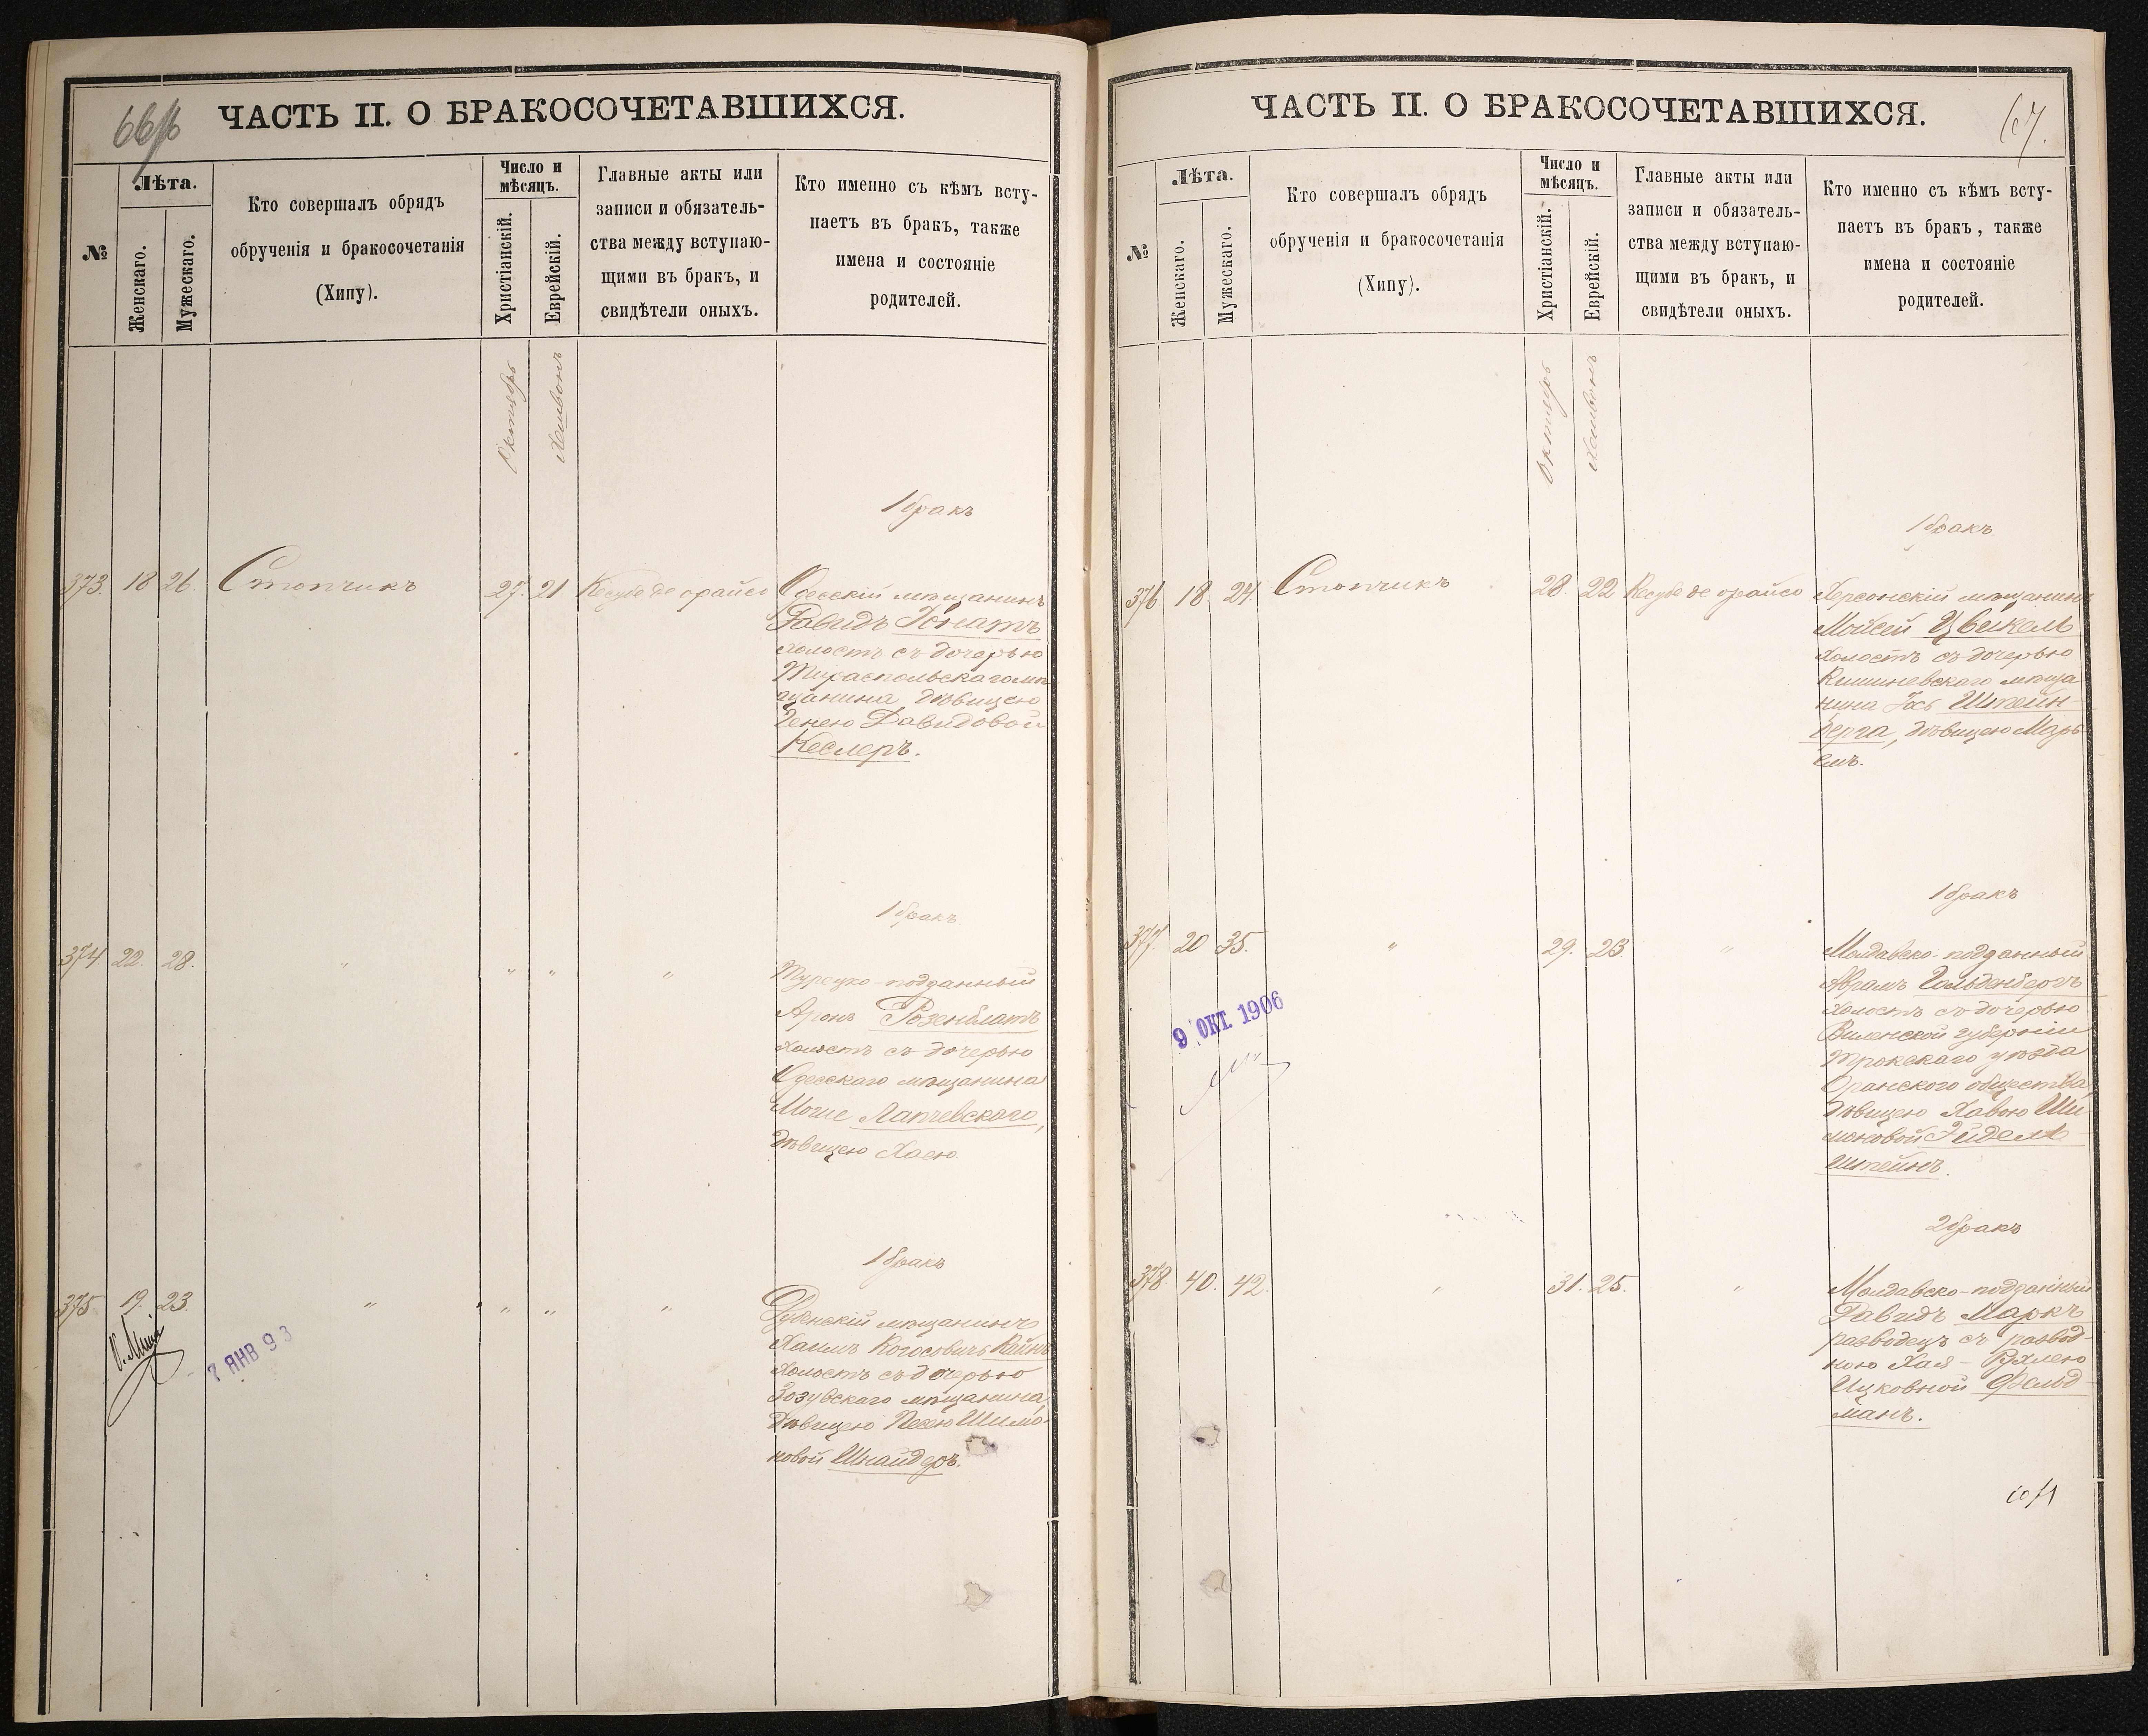 66
ЧАСТЬ II. О БРАКОСОЧЕТАВШИХСЯ.
№
Лѣта.
Женскаго.
Мужескаго.
Кто совершалъ обрядъ
обрученія и бракосочетанія
(Хипу).
Число и
мѣсяцъ.
Христіанскій.
Еврейскій.
Главные акты или
записи и обязатель-
ства между вступаю-
щими въ бракъ, и
свидѣтели оныхъ.
Кто именно съ кѣмъ всту-
паетъ въ бракъ, также
имена и состояніе
родителей.
Октябрь
Хешвонъ
1 бракъ
373. 18 26. Стопчикъ 27. 21 Кесубе де орайсо Одесскій мѣщанинъ
Давидъ Юнатъ
холостъ съ дочерью
Тираспольскаго мѣ
щанина дѣвицею
Генею Давидовой
Кеслеръ.
1 бракъ
374 22. 28. " " " " Турецко-подданный
Аронъ Розенблатъ
холостъ съ дочерью
Одесскаго мѣщанина
Мошe Лапчевскаго,
дѣвицею Хаею.
1 бракъ
375. 19. 23. " " " " Дубенскій мѣщанинъ
Хаимъ
холостъ съ дочерью
мѣщанина,
дѣвицею Песею Шимо-
новой Шнайдеръ.
7 ЯНВ 93
67.
ЧАСТЬ II. О БРАКОСОЧЕТАВШИХСЯ.
№
Лѣта.
Женскаго.
Мужескаго.
Кто совершалъ обрядъ
обрученія и бракосочетанія
(Хипу).
Число и
мѣсяцъ.
Христіанскій.
Еврейскій.
Главные акты или
записи и обязатель-
ства между вступаю-
щими въ бракъ, и
свидѣтели оныхъ.
Кто именно съ кѣмъ всту-
паетъ въ бракъ, также
имена и состояніе
родителей.
Октябрь
Хешвонъ
1 бракъ
376 18. 24. Стопчикъ 28. 22 Кесубе де орайсо Херсонскій мѣщанинъ
Мойсей Цвикель
холостъ съ дочерью
Кишиневскаго мѣща
нина Штейн-
берга, дѣвицею Марь
емъ.
1 бракъ
377. 20 35. " 29. 23 " Молдавско-подданный
Абрамъ Гольденбергъ
холостъ съ дочерью
Виленской губерніи
Трокскаго уѣзда
Оранского общества,
дѣвицею Хавою Ши
моновой Эйдель-
штейнъ.
9 ОКТ. 1906
2 бракъ
378 40. 42. " 31. 25. " Молдавско-подданный
Давидъ Маркъ
разводецъ съ развод-
ною Хая-Рухлею
Ицковной Фельд-
манъ.